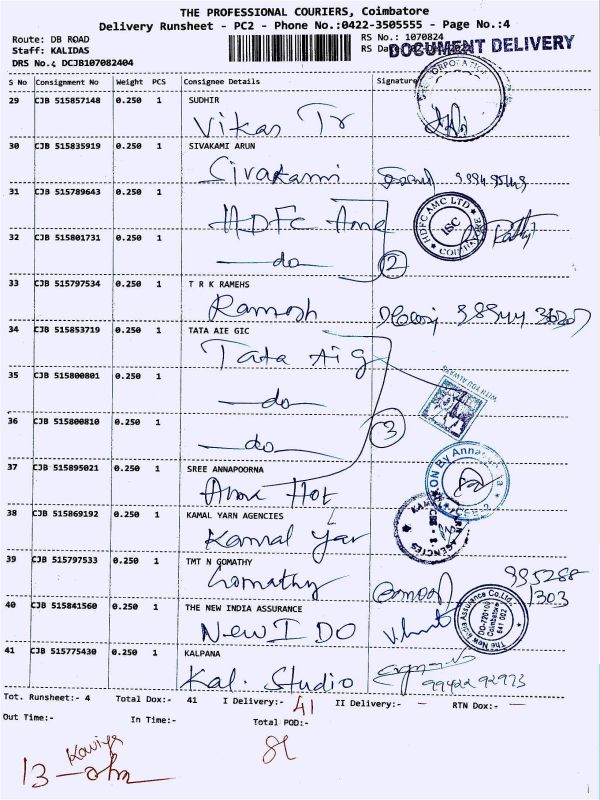 THE PROFESSIONAL COURIERS, Coimbatore
Delivery Runsheet - PC2 - Phone No.:0422-3505555 - Page No.:4
Route: DB ROAD
Staff: KALIDAS
DRS No.4 DCJB107082404
RS No.: 1070824
RS Da
DOCUMENT DELIVERY
S No Consignment No Weight PCS Consignee Details Signature
29 CJB 515857148 0.250 1 SUDHIR
Vikas Tr
30 CJB 515835919 0.250 1 SIVAKAMI ARUN
Sivakami
31 CJB 515789643 0.250 1
HDFC Amc
HDFC AMC LTD
ISC
32 CJB 515801731 0.250 1
do
2
33 CJB 515797534 0.250 1 T R K RAMEHS
Ramesh
34 CJB 515853719 0.250 1 TATA AIE GIC
Tata Aig
35 CJB 515800801 0.250 1
do
WITH YOU ALWAYS
36 CJB 515800810 0.250 1
do
3
37 CJB 515895021 0.250 1 SREE ANNAPOORNA
Anna Hot
38 CJB 515869192 0.250 1 KAMAL YARN AGENCIES
Kamal Yar
39 CJB 515797533 0.250 1 TMT N GOMATHY
Gomathy
995288
1303
40 CJB 515841560 0.250 1 THE NEW INDIA ASSURANCE
New I DO
The New India Assurance Co.Ltd.
Coimbatore
641 002
41 CJB 515775430 0.250 1 KALPANA
Kal. Studio
99422 92973
Tot. Runsheet:- 4 Total Dox:- 41 I Delivery:- 41 II Delivery:- — RTN Dox:- —
Out Time:- In Time:- Total POD:-
Kaviya
13